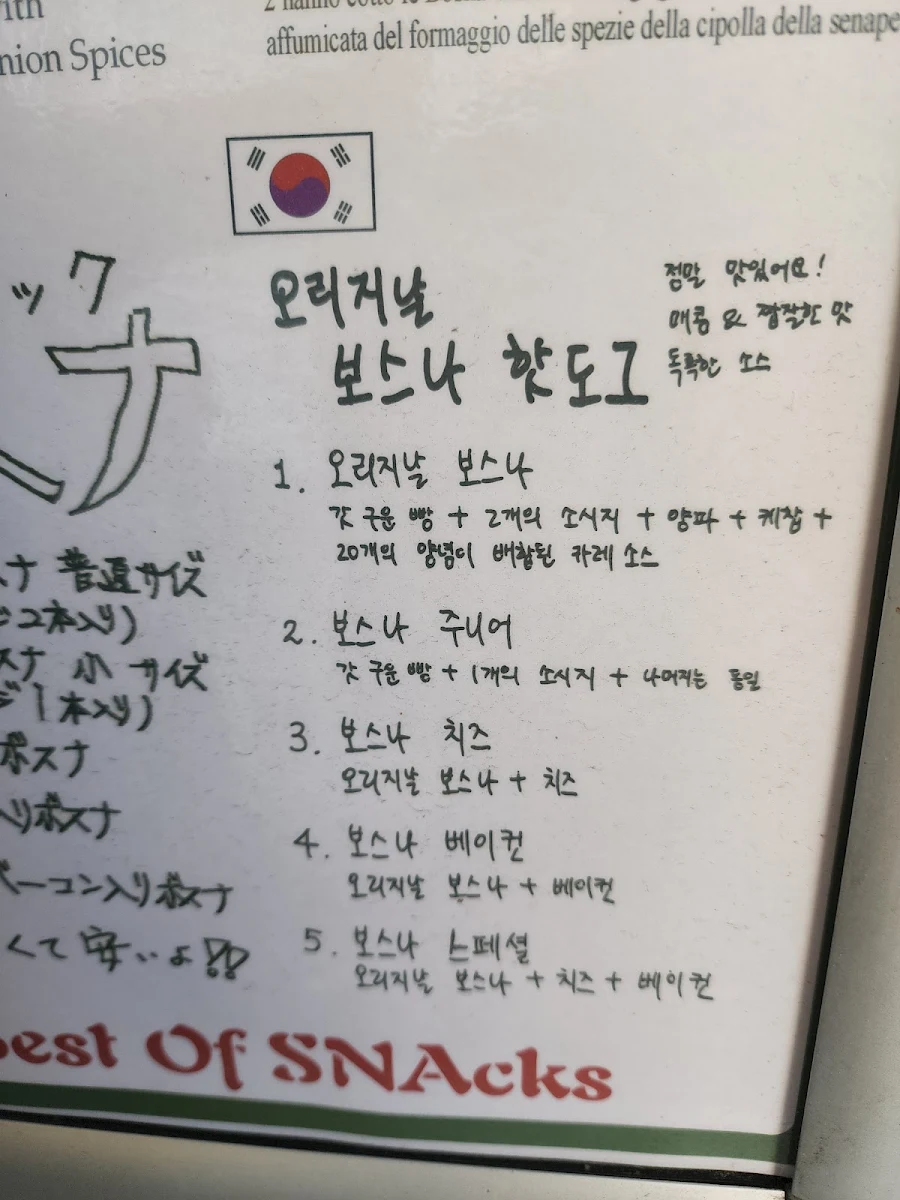 with
nion Spices
affumicata del formaggio delle spezie della cipolla della senape
ック
ナ
ナ 普通サイズ
2本入り)
スナ 小 サイズ
ジ1本入り)
ボスナ
入りボスナ
ベーコン入りボスナ
くて安いよ!!
오리지날
보스나 핫도그
정말 맛있어요!
매콤 & 짭짤한 맛
독특한 소스
1. 오리지날 보스나
갓 구운 빵 + 2개의 소시지 + 양파 + 케찹 +
20개의 양념이 배합된 카레 소스
2. 보스나 주니어
갓 구운 빵 + 1개의 소시지 + 나머지는 동일
3. 보스나 치즈
오리지날 보스나 + 치즈
4. 보스나 베이컨
오리지날 보스나 + 베이컨
5. 보스나 스페셜
오리지날 보스나 + 치즈 + 베이컨
Best Of SNAcks